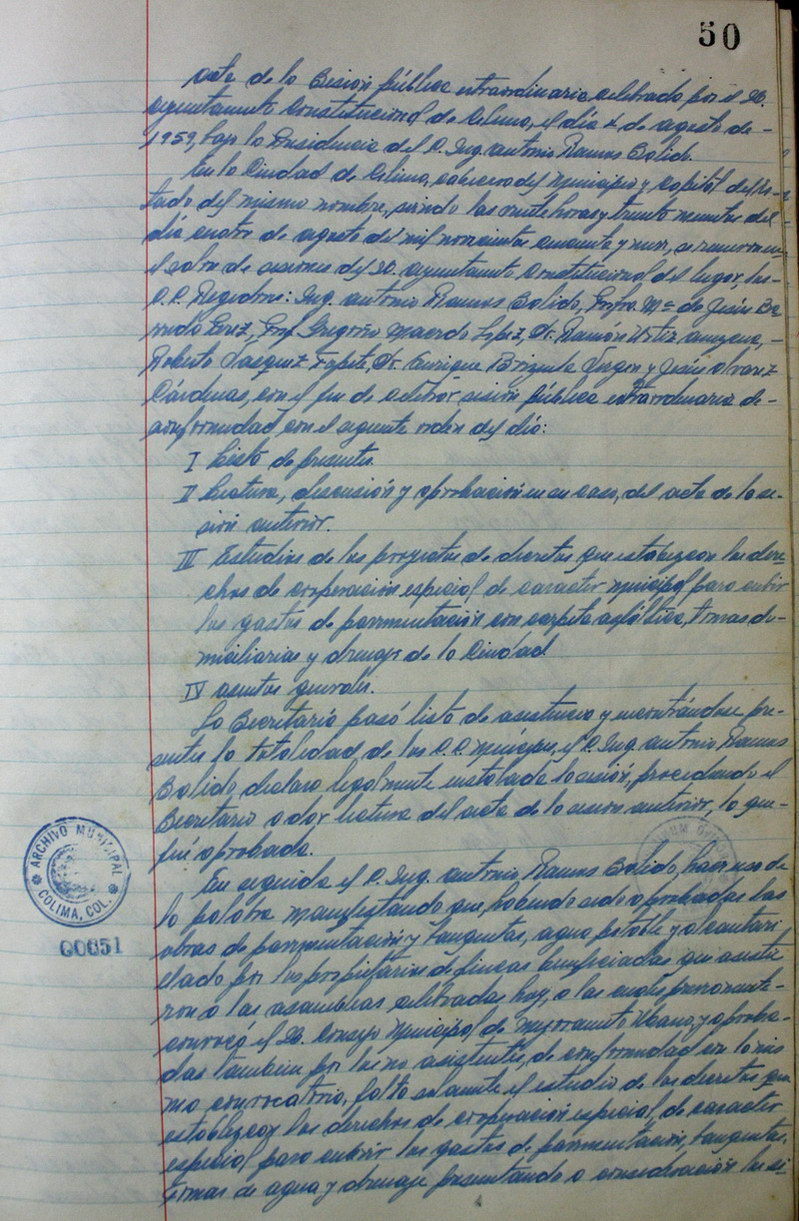 50
Acta de la Sesión pública extraordinaria celebrada por el H.
Ayuntamiento Constitucional de Colima, el día 4 de agosto de -
1959, bajo la Presidencia del C. Ing. Antonio Ramos Salido.
En la Ciudad de Colima, cabecera del Municipio y Capital del Es-
tado del mismo nombre, siendo las veinte horas y treinta minutos del
día cuatro de agosto de mil novecientos cincuenta y nueve, se reunieron en
el salón de sesiones del H. Ayuntamiento Constitucional del lugar, los -
C.C. Regidores: Ing. Antonio Ramos Salido, Profra. Ma. de Jesús
Prof. Gregorio Macedo López, Dr. Ramón -
Roberto Dr. Enrique Brizuela y Jesús Alvarez
Cárdenas, con el fin de celebrar sesión pública extraordinaria de -
conformidad con el siguiente orden del día:
I Lista de presentes.
II Lectura, discusión y aprobación en su caso, del acta de la se-
sión anterior.
III Estudios de los proyectos de decretos que establezcan los dere-
chos de cooperación especial de caracter municipal para cubrir
los gastos de pavimentación con carpeta asfáltica, tomas do-
miciliarias y drenaje de la Ciudad
IV Asuntos generales.
La Secretaría pasó lista de asistencia y encontrándose pre-
sentes la totalidad de los C.C. Municipes, el C. Ing. Antonio Ramos
Salido declaro legalmente instalada la sesión, procediendo el
Secretario a dar lectura del acta de la sesión anterior, la que -
fué aprobada.
En seguida el C. Ing. Antonio Ramos Salido, hace uso de
la palabra manifestando que, habiendo sido aprobadas las
obras de pavimentación y banquetas, agua potable y alcantari
llado por los propietarios de fincas beneficiadas que asistie
ron a las asambleas celebradas hoy, a las cuales previamente -
convocó el H. Consejo Municipal de Mejoramiento Urbano, y aproba-
das tambien por los no asistentes, de conformidad con la mis
ma convocatoria, falta solamente el estudio de los decretos que
establezcan los derechos de cooperación especial, de caracter
especial para cubrir los gastos de pavimentación, banquetas,
tomas de agua y drenaje presentando a consideración los si-
ARCHIVO MUNICIPAL
COLIMA, COL.
00051